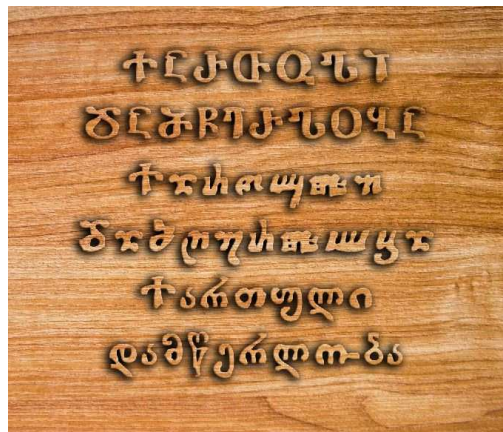 ႵႠႰႧႳႪႨ
ႣႠႫႼႤႰႪႭႡႠ
ⴕⴀⴐⴇⴓⴊⴈ
ⴃⴀⴋⴜⴄⴐⴊⴍⴁⴀ
ქართული
დამწერლობა